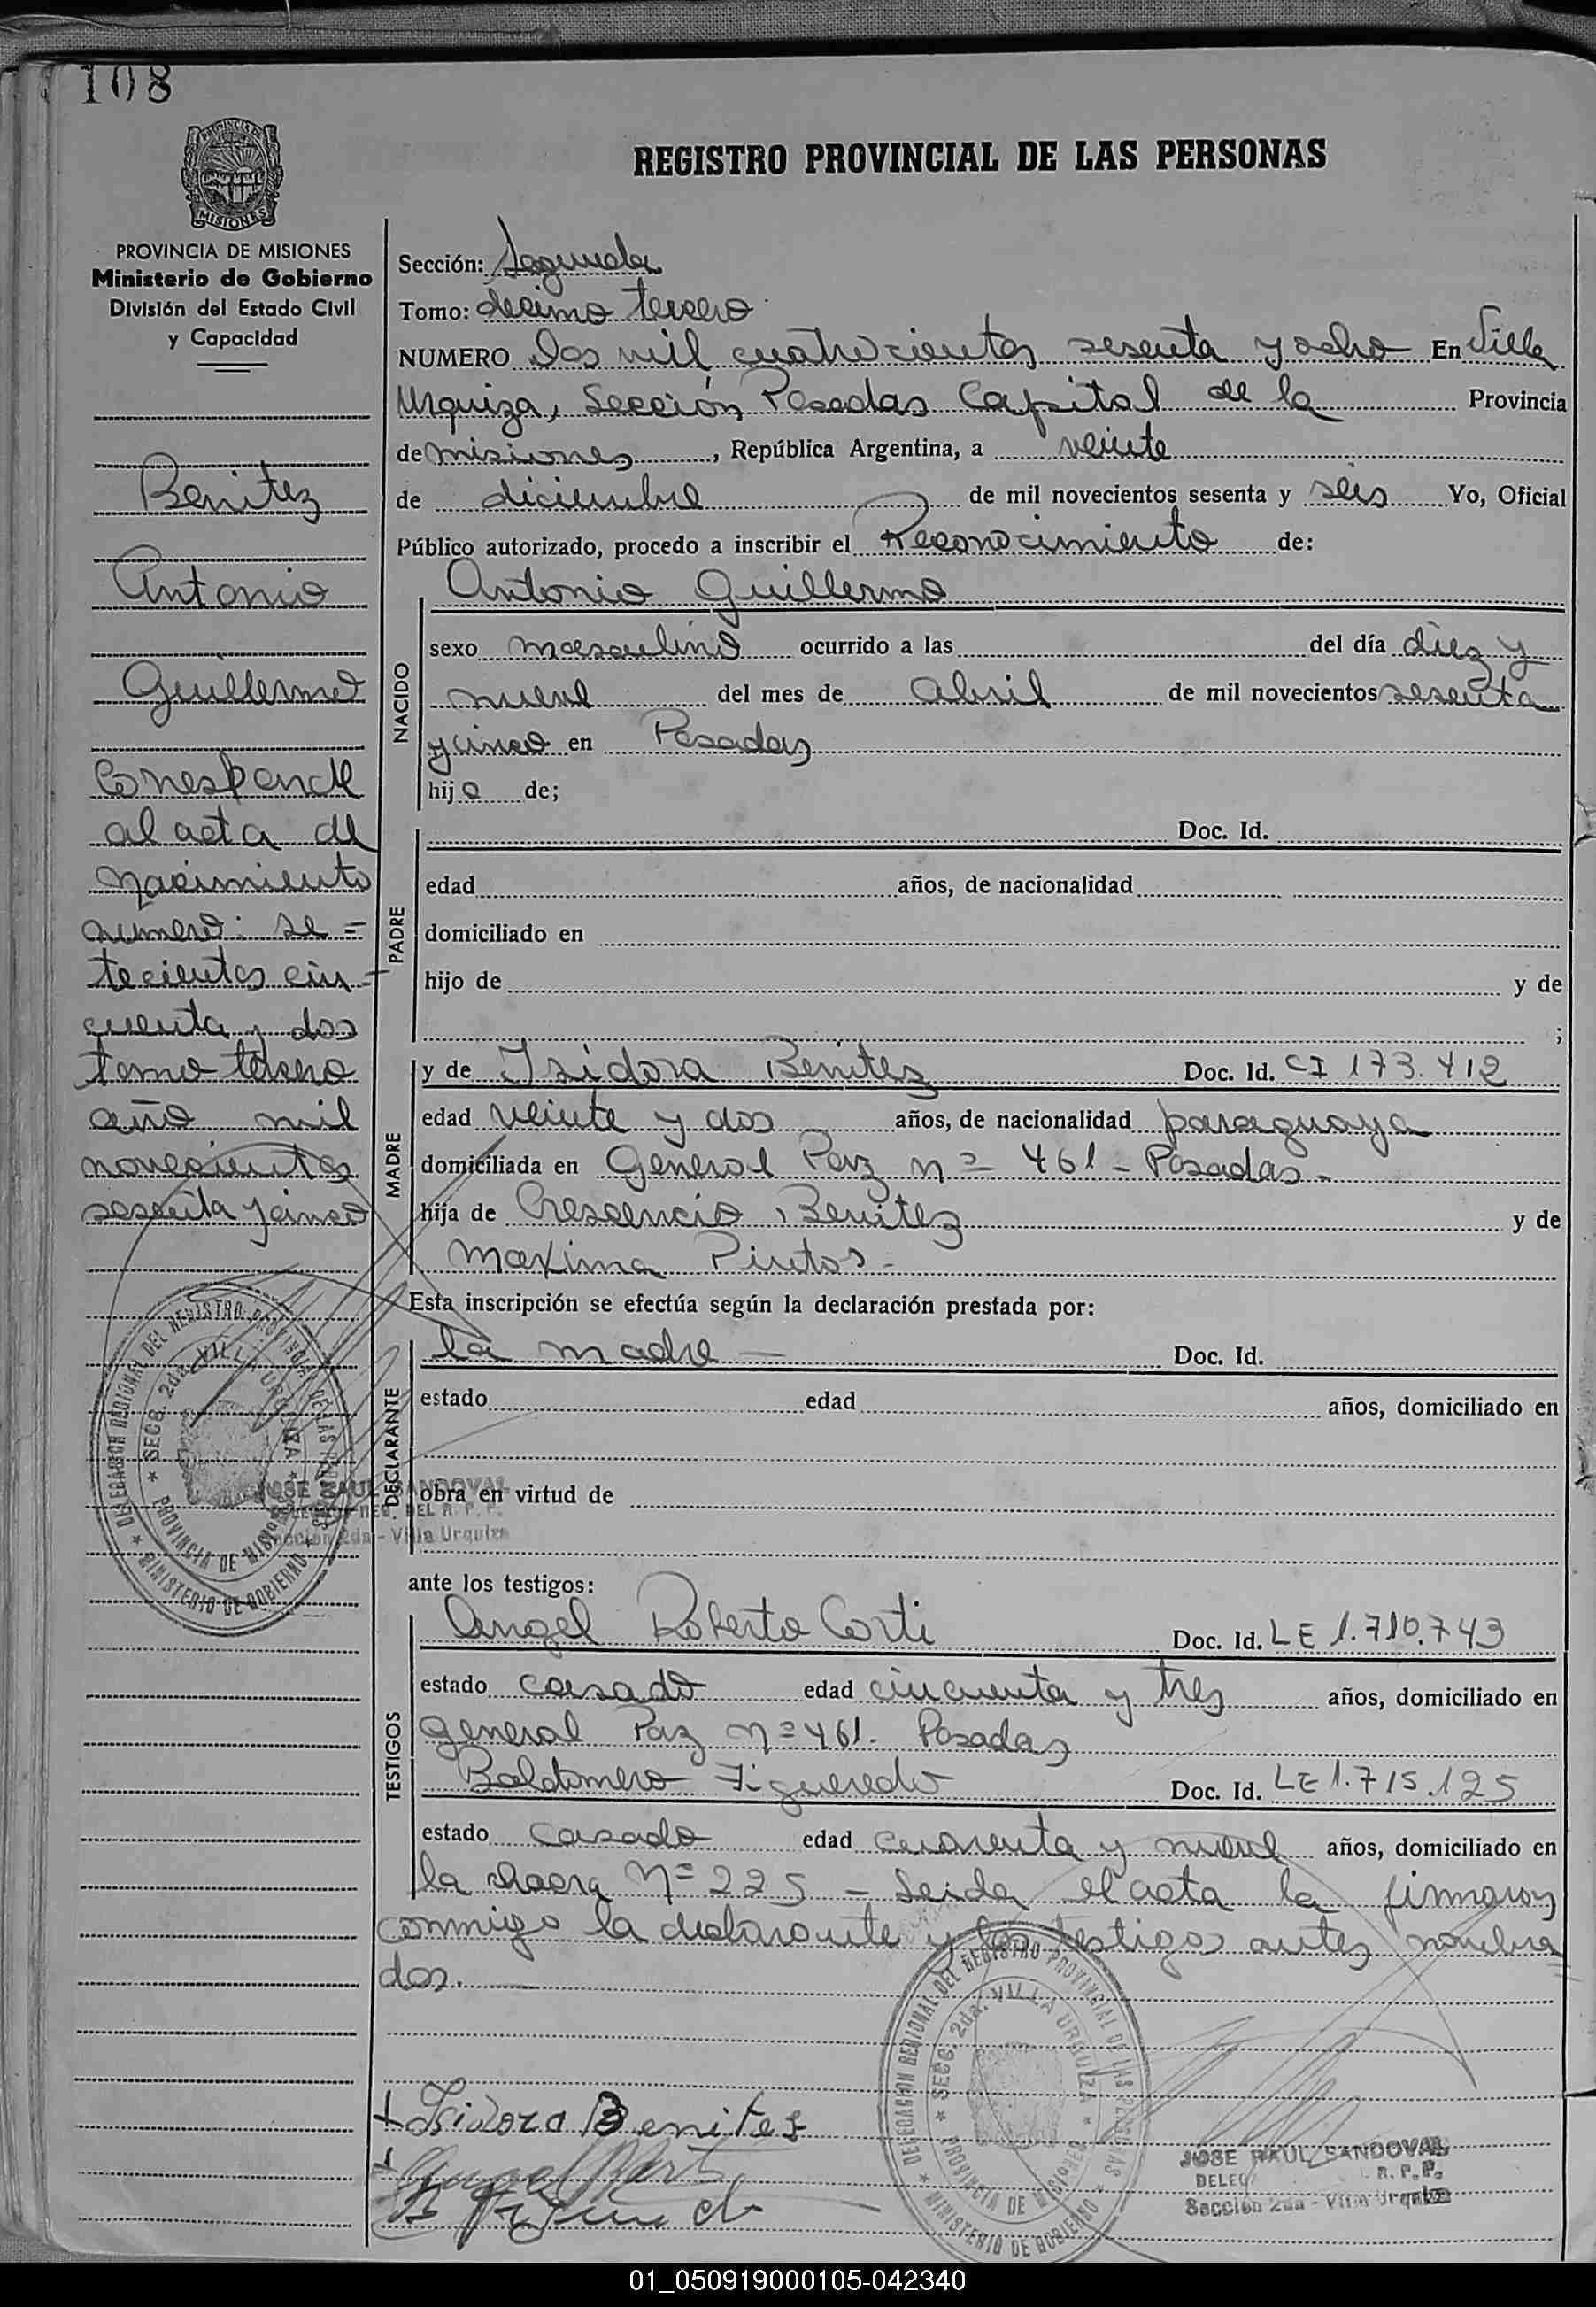 108
PROVINCIA DE
MISIONES
REGISTRO PROVINCIAL DE LAS PERSONAS
PROVINCIA DE MISIONES
Ministerio de Gobierno
División del Estado Civil
y Capacidad
Benitez
Antonio
Guillermo
Corresponde
al acta de
nacimiento
numero: se=
tecientos cin=
cuenta y dos
tomo tercero
año mil
novecientos
sesenta y cinco
DELEGACION REGIONAL DEL REGISTRO PROVINCIAL DE LAS PERSONAS
SECC. 2da. VILLA URQUIZA
PROVINCIA DE MISIONES
MINISTERIO DE GOBIERNO
JOSE RAUL SANDOVAL
DEL R. P. P.
Sección 2da - Villa Urquiza
Sección: Segunda
Tomo: decimo tercero
NUMERO Dos mil cuatrocientos sesenta y ocho En Villa
Urquiza, Sección Posadas Capital de la Provincia
de misiones, República Argentina, a veinte
de diciembre de mil novecientos sesenta y seis Yo, Oficial
Público autorizado, procedo a inscribir el Reconocimiento de:
Antonio Guillermo
NACIDO
sexo masculino ocurrido a las del día diez y
nueve del mes de abril de mil novecientos sesenta
y cinco en Posadas
hijo de;
PADRE
Doc. Id.
edad años, de nacionalidad
domiciliado en
hijo de y de
;
MADRE
y de Isidora Benitez Doc. Id. CI 173.412
edad veinte y dos años, de nacionalidad paraguaya
domiciliada en General Paz nº 461 - Posadas.
hija de Crescencio Benitez y de
Maxima Pintos -
Esta inscripción se efectúa según la declaración prestada por:
DECLARANTE
la madre — Doc. Id.
estado edad años, domiciliado en
obra en virtud de
ante los testigos:
TESTIGOS
Angel Roberto Corti Doc. Id. LE 1.710.743
estado casado edad cincuenta y tres años, domiciliado en
general Paz nº 461. Posadas
Baldomero Figueredo Doc. Id. LE 1.715.125
estado casado edad cuarenta y nueve años, domiciliado en
la chacra Nº 225 - Leida el acta la firmaron
conmigo la declarante y los testigos antes nombra=
dos.
Isidora Benites
DELEGACION REGIONAL DEL REGISTRO PROVINCIAL DE LAS PERSONAS
SECC. 2da. VILLA URQUIZA
PROVINCIA DE MISIONES
MINISTERIO DE GOBIERNO
JOSE RAUL SANDOVAL
R. P. P.
Sección 2da - Villa Urquiza
01_050919000105-042340